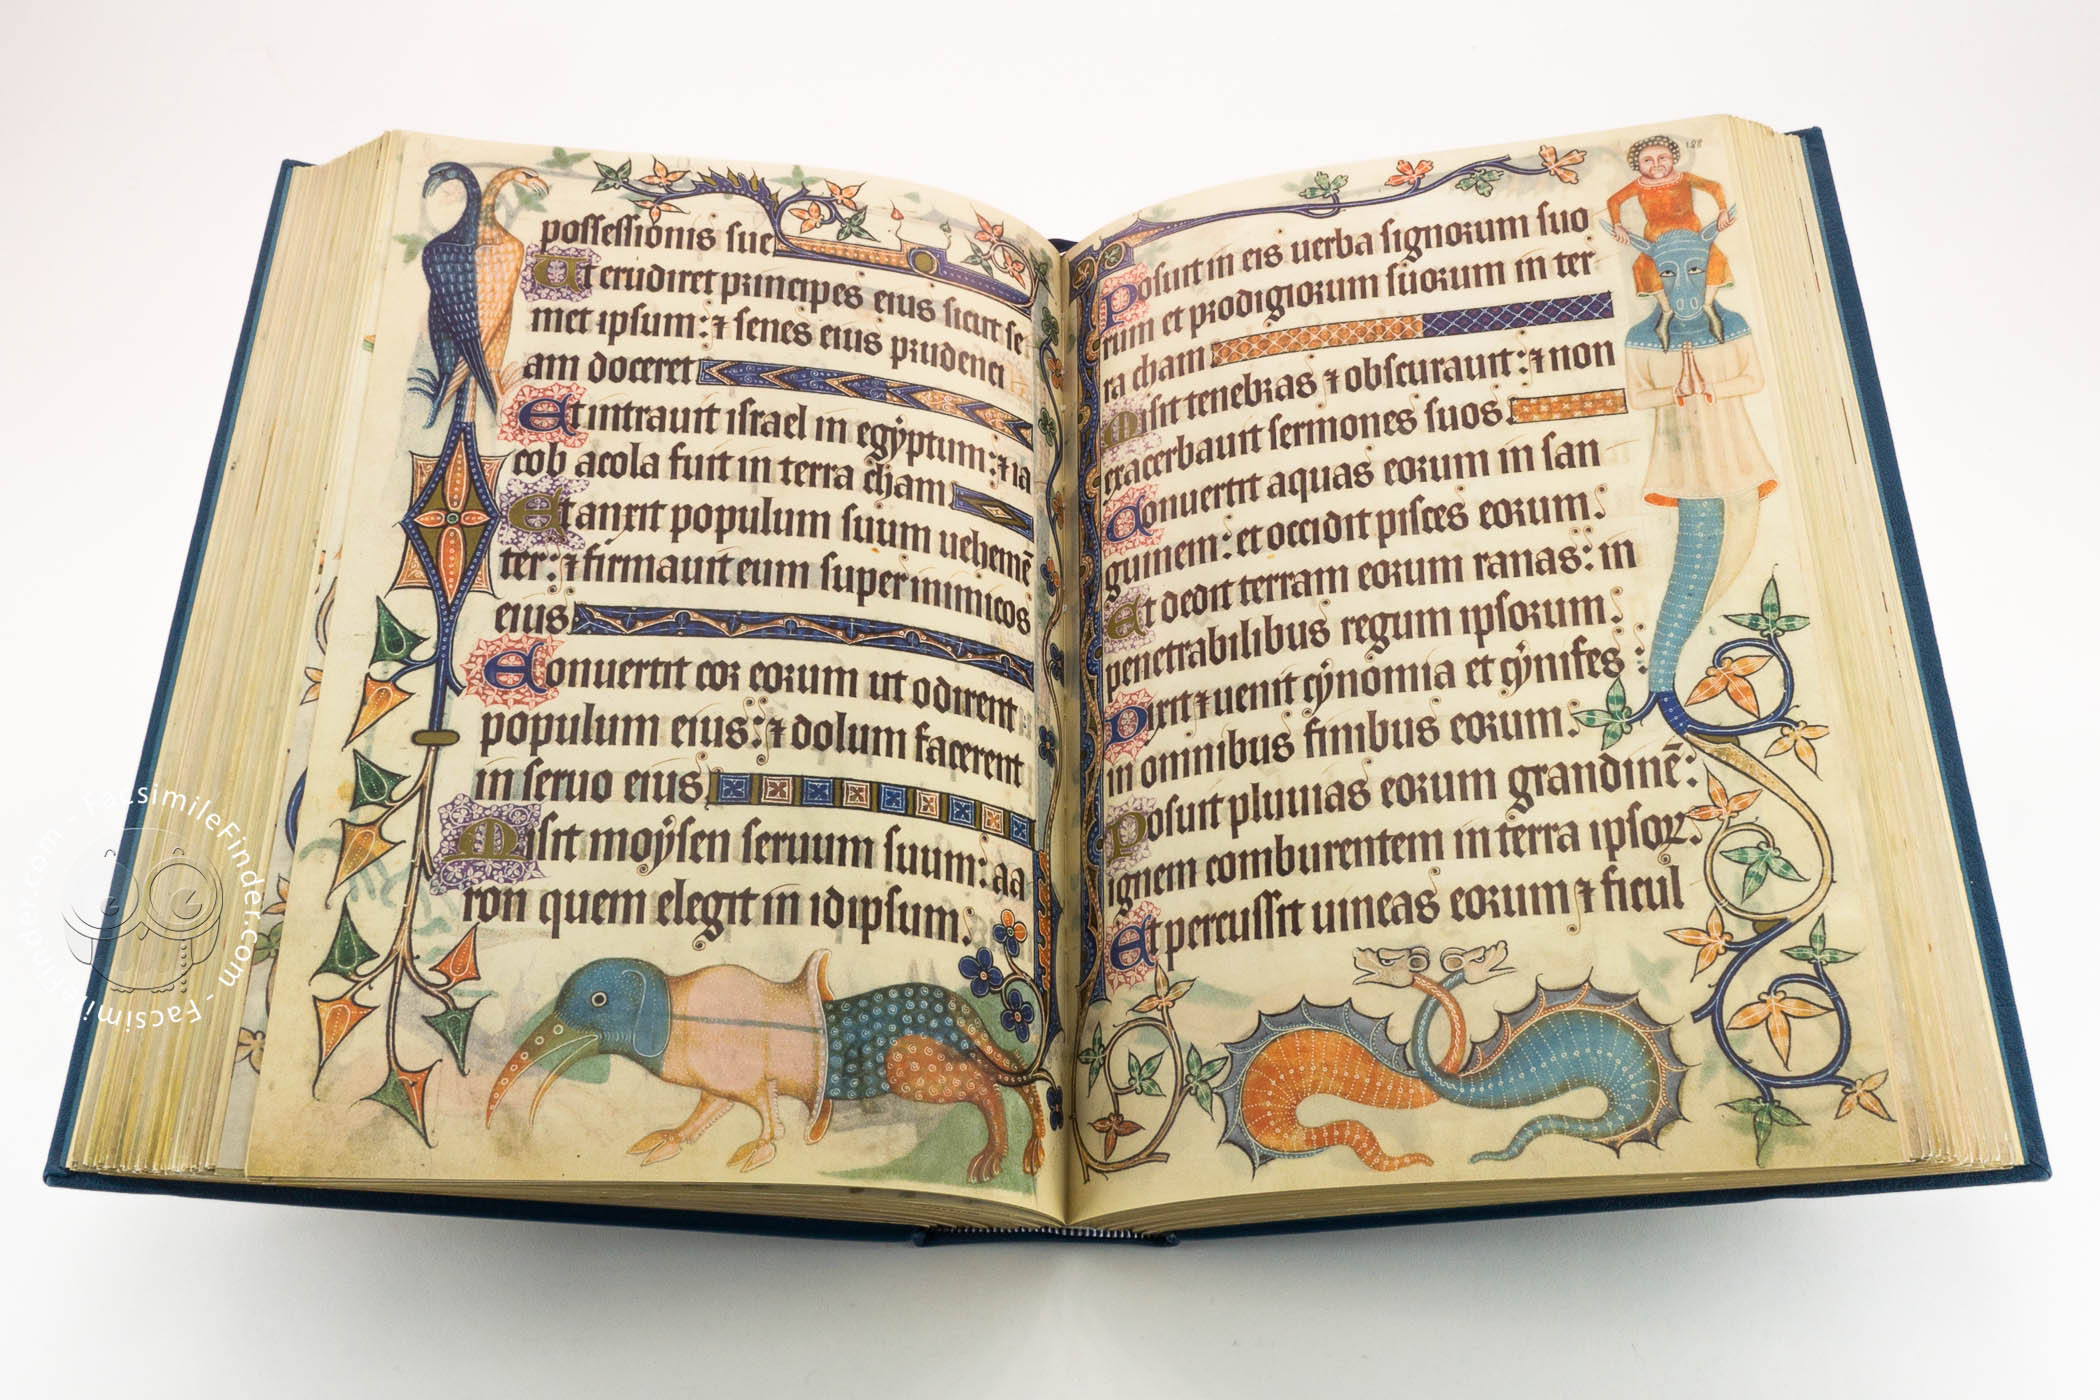 possessionis sue
Ut erudiret principes eius sicut se
met ipsum: ⁊ senes eius prudenci
am doceret
Et intrauit israel in egẏptum: ⁊ ia
cob acola fuit in terra cham
Et auxit populum suum uehemē
ter: ⁊ firmauit eum super inimicos
eius
Conuertit cor eorum ut odirent
populum eius: ⁊ dolum facerent
in seruo eius
Misit moẏsen seruum suum: aa
ron quem elegit in idipsum.
188
Posuit in eis uerba signorum suo
rum et prodigiorum suorum in ter
ra cham
Misit tenebras ⁊ obscurauit: ⁊ non
exacerbauit sermones suos.
Conuertit aquas eorum in san
guinem: et occidit pisces eorum.
Et dedit terram eorum ranas: in
penetrabilibus regum ipsorum.
Dixit ⁊ uenit cẏnomia et cẏnifes:
in omnibus finibus eorum.
Posuit pluuias eorum grandinē:
ignem comburentem in terra ipsoꝝ.
Et percussit uineas eorum ⁊ ficul
FacsimileFinder.com - FacsimileFinder.com -